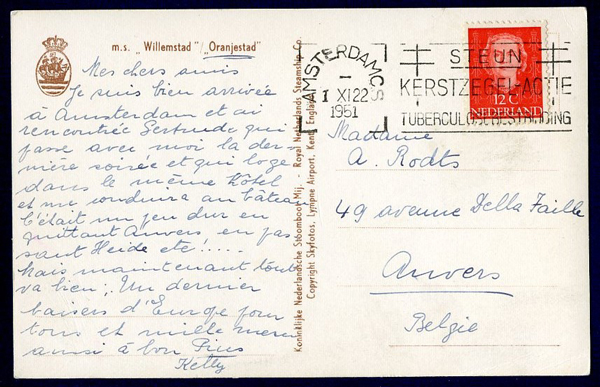 m.s. „Willemstad" / „Oranjestad"
Mes chers amis
Je suis bien arrivée
à Amsterdam et ai
rencontrée Gertrude qui
passe avec moi la der-
nière soirée et qui loge
dans le même hôtel
et me conduira au bâteau
C'était un peu dur en
quittant Anvers en pas-
sant Heide etc!.....
Mais maintenant tout
va bien; Un dernier
baisers d'Europe pour
tous et mille merci
aussi à bon Pius
Ketty
Koninklijke Nederlandsche Stoomboot Mij. - Royal Netherlands Steamship Co.
Copyright Skyfotos, Lympne Airport, Kent, England
AMSTERDAM CS
1 XI 22
1951
STEUN
KERSTZEGEL-ACTIE
TUBERCULOSEBESTRIJDING
12 C
NEDERLAND
Madame
A. Rodts
49 avenue Della Faille
Anvers
Belgie